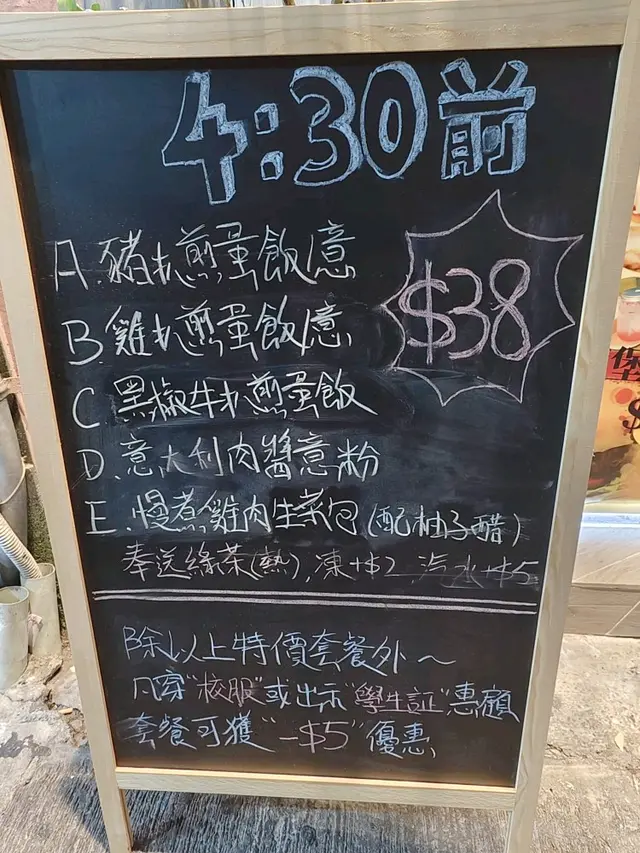 4:30前
A.豬扒煎蛋飯/意
$38
B.雞扒煎蛋飯/意
C 黑椒牛扒煎蛋飯
D.意大利肉醬意粉
E.慢煮雞肉生菜包(配柚子醋)
奉送綠茶(熱),凍+$2 汽水+$5
除以上特價套餐外~
凡穿"校服"或出示"學生証"惠顧
套餐可獲"-$5"優惠